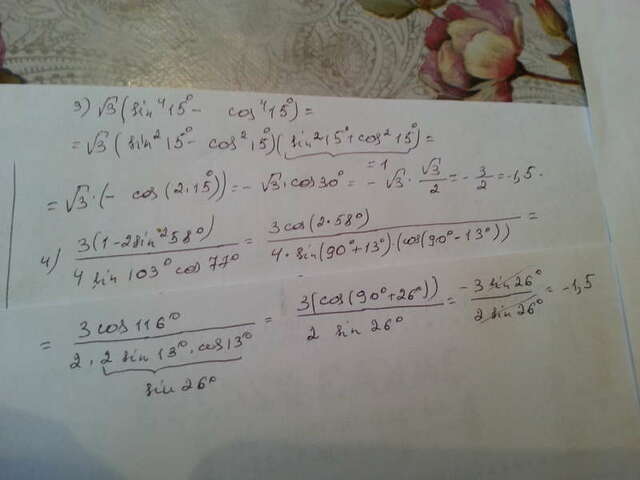 3) √3 (sin⁴15° - cos⁴15°) =
= √3 (sin²15° - cos²15°)(sin²15° + cos²15°) =
= 1
= √3 · (- cos(2·15°)) = - √3 · cos30° = - √3 · √3/2 = - 3/2 = -1,5.
4) 3(1-2sin²58°) / 4 sin103° cos77° = 3cos(2·58°) / 4·sin(90°+13°)·(cos(90°-13°)) =
= 3cos116° / 2·2sin13°·cos13° = 3(cos(90°+26°)) / 2 sin26° = -3sin26° / 2sin26° = -1,5
sin26°